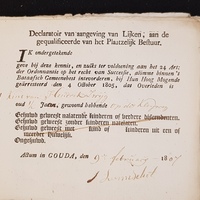 Declaratoir van aangeving van Lijken, aan de
gequalificeerde van het Plaatzelijk Bestuur.
IK ondergeteekende
geve bij deze kennis, en zulks ter voldoening aan het 24 Art:
der Ordonnantie op het recht van Successie, alomme binnen 's
Bataafsch Gemeenebest intevoorderen, bij Hun Hoog Mogende
gearresteerd den 4 October 1805, dat Overleden is
Jaeren, gewoond hebbende
Gehuwd geweest nalatende kinderen of verdere descendenten.
Gehuwd geweest zonder kinderen natelaten.
Gehuwd geweest met kind of kinderen uit een of
meerder Huwelijk.
Ongehuwd.
Actum in GOUDA, den 1807